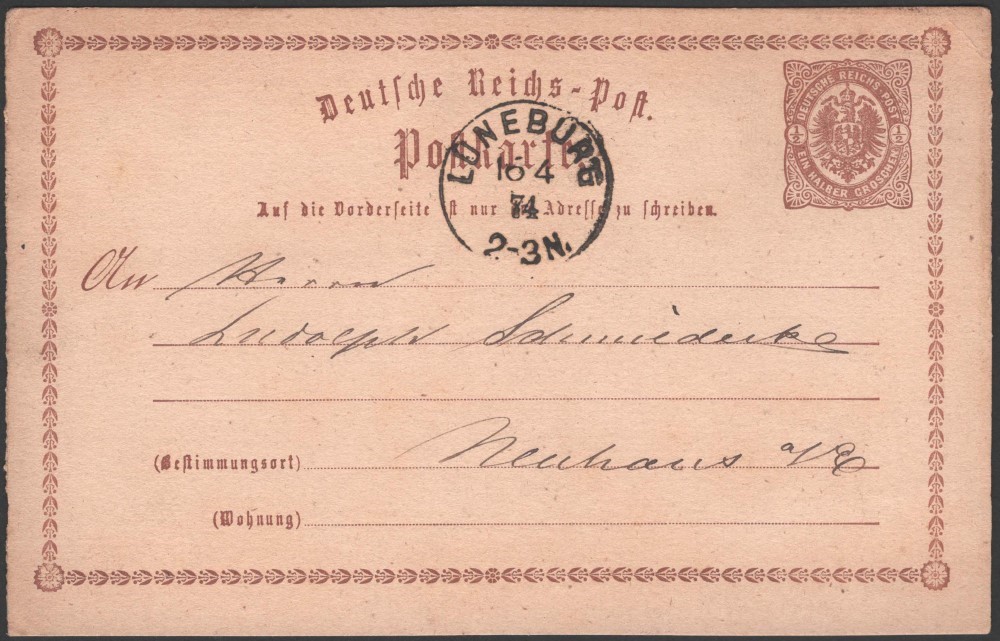 Deutsche Reichs-Post.
Postkarte
DEUTSCHE REICHS-POST
½ ½
EIN HALBER GROSCHEN
LÜNEBURG
16 4
74
2-3N.
Auf die Vorderseite ist nur die Adresse zu schreiben.
An Herrn
Ludolph Schmiedecke
Neuhaus a/E
(Bestimmungsort)
(Wohnung)